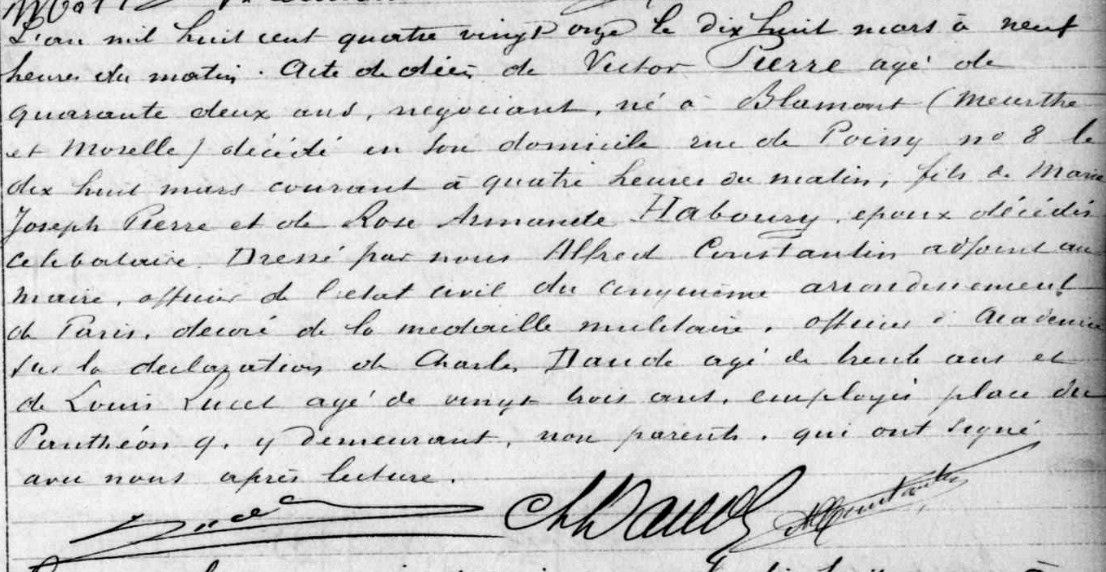 L'an mil huit cent quatre vingt onze le dix huit mars à neuf
heures du matin. Acte de décès de Victor Pierre agé de
quarante deux ans, negociant, né à Blamont (Meurthe
et Moselle) décédé en son domicile rue de Poissy no 8 le
dix huit mars courant à quatre heures du matin, fils de Marie
Joseph Pierre et de Rose Armande Haboury, epoux décédés
celebataire. Dressé par nous Alfred Constantin adjoint au
maire, officier de l'etat civil du cinquième arrondissement
de Paris, decoré de la medaille militaire, officier d'Academie
sur la declaration de Charles Daude agé de trente ans et
de Louis Lucet agé de vingt trois ans, employés place du
Panthéon 9, y demeurant, non parents, qui ont signé
avec nous après lecture.
Lucet Ch Daude A Constantin